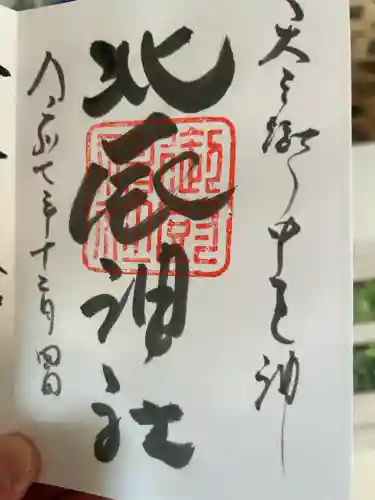 天之御中主神
北辰神社
令和七年十二月四日